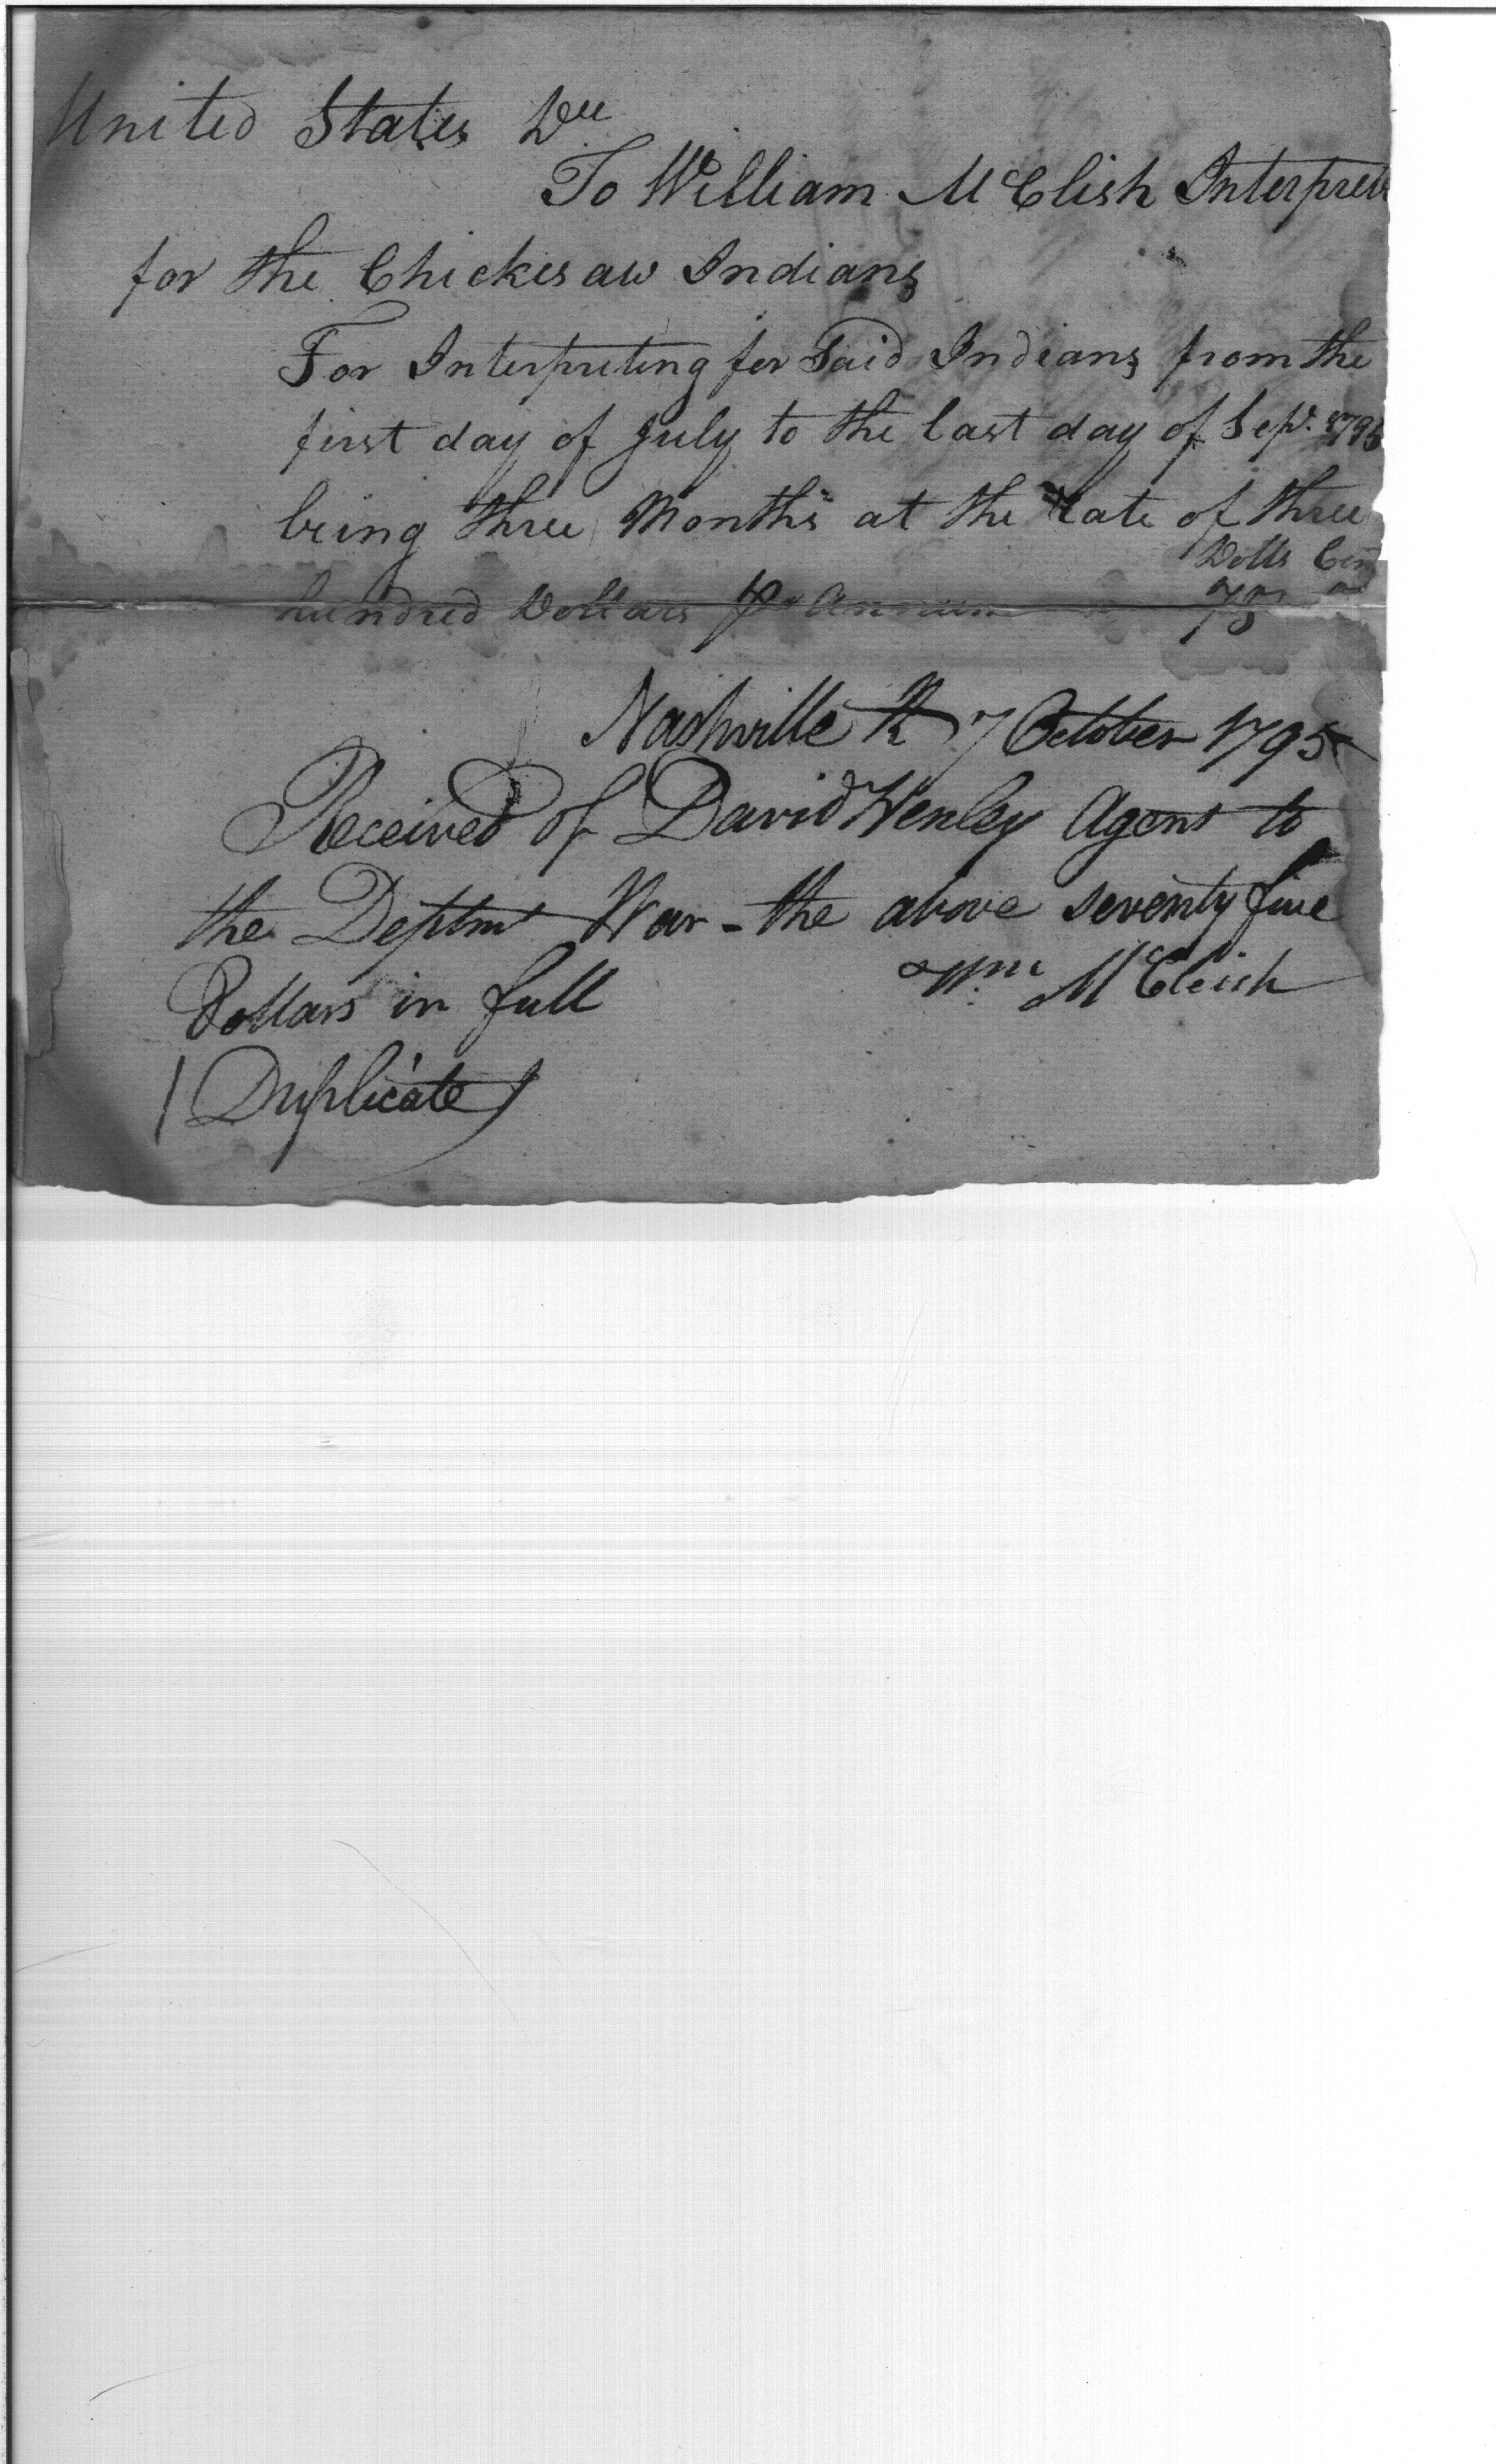 United States Dr
To William McClish Interprete
for the Chickesaw Indians
For Interpreting for Said Indians from the
first day of July to the last day of Sept. 1795
being three Months at the rate of three
Dolls Cen
hundred Dollars Pr Annum 75
Nashville 7 October 1795
Received of David Henley Agent to
the Deptmt War - the above seventy five
Dollars in full Wm McClish
(Duplicate)